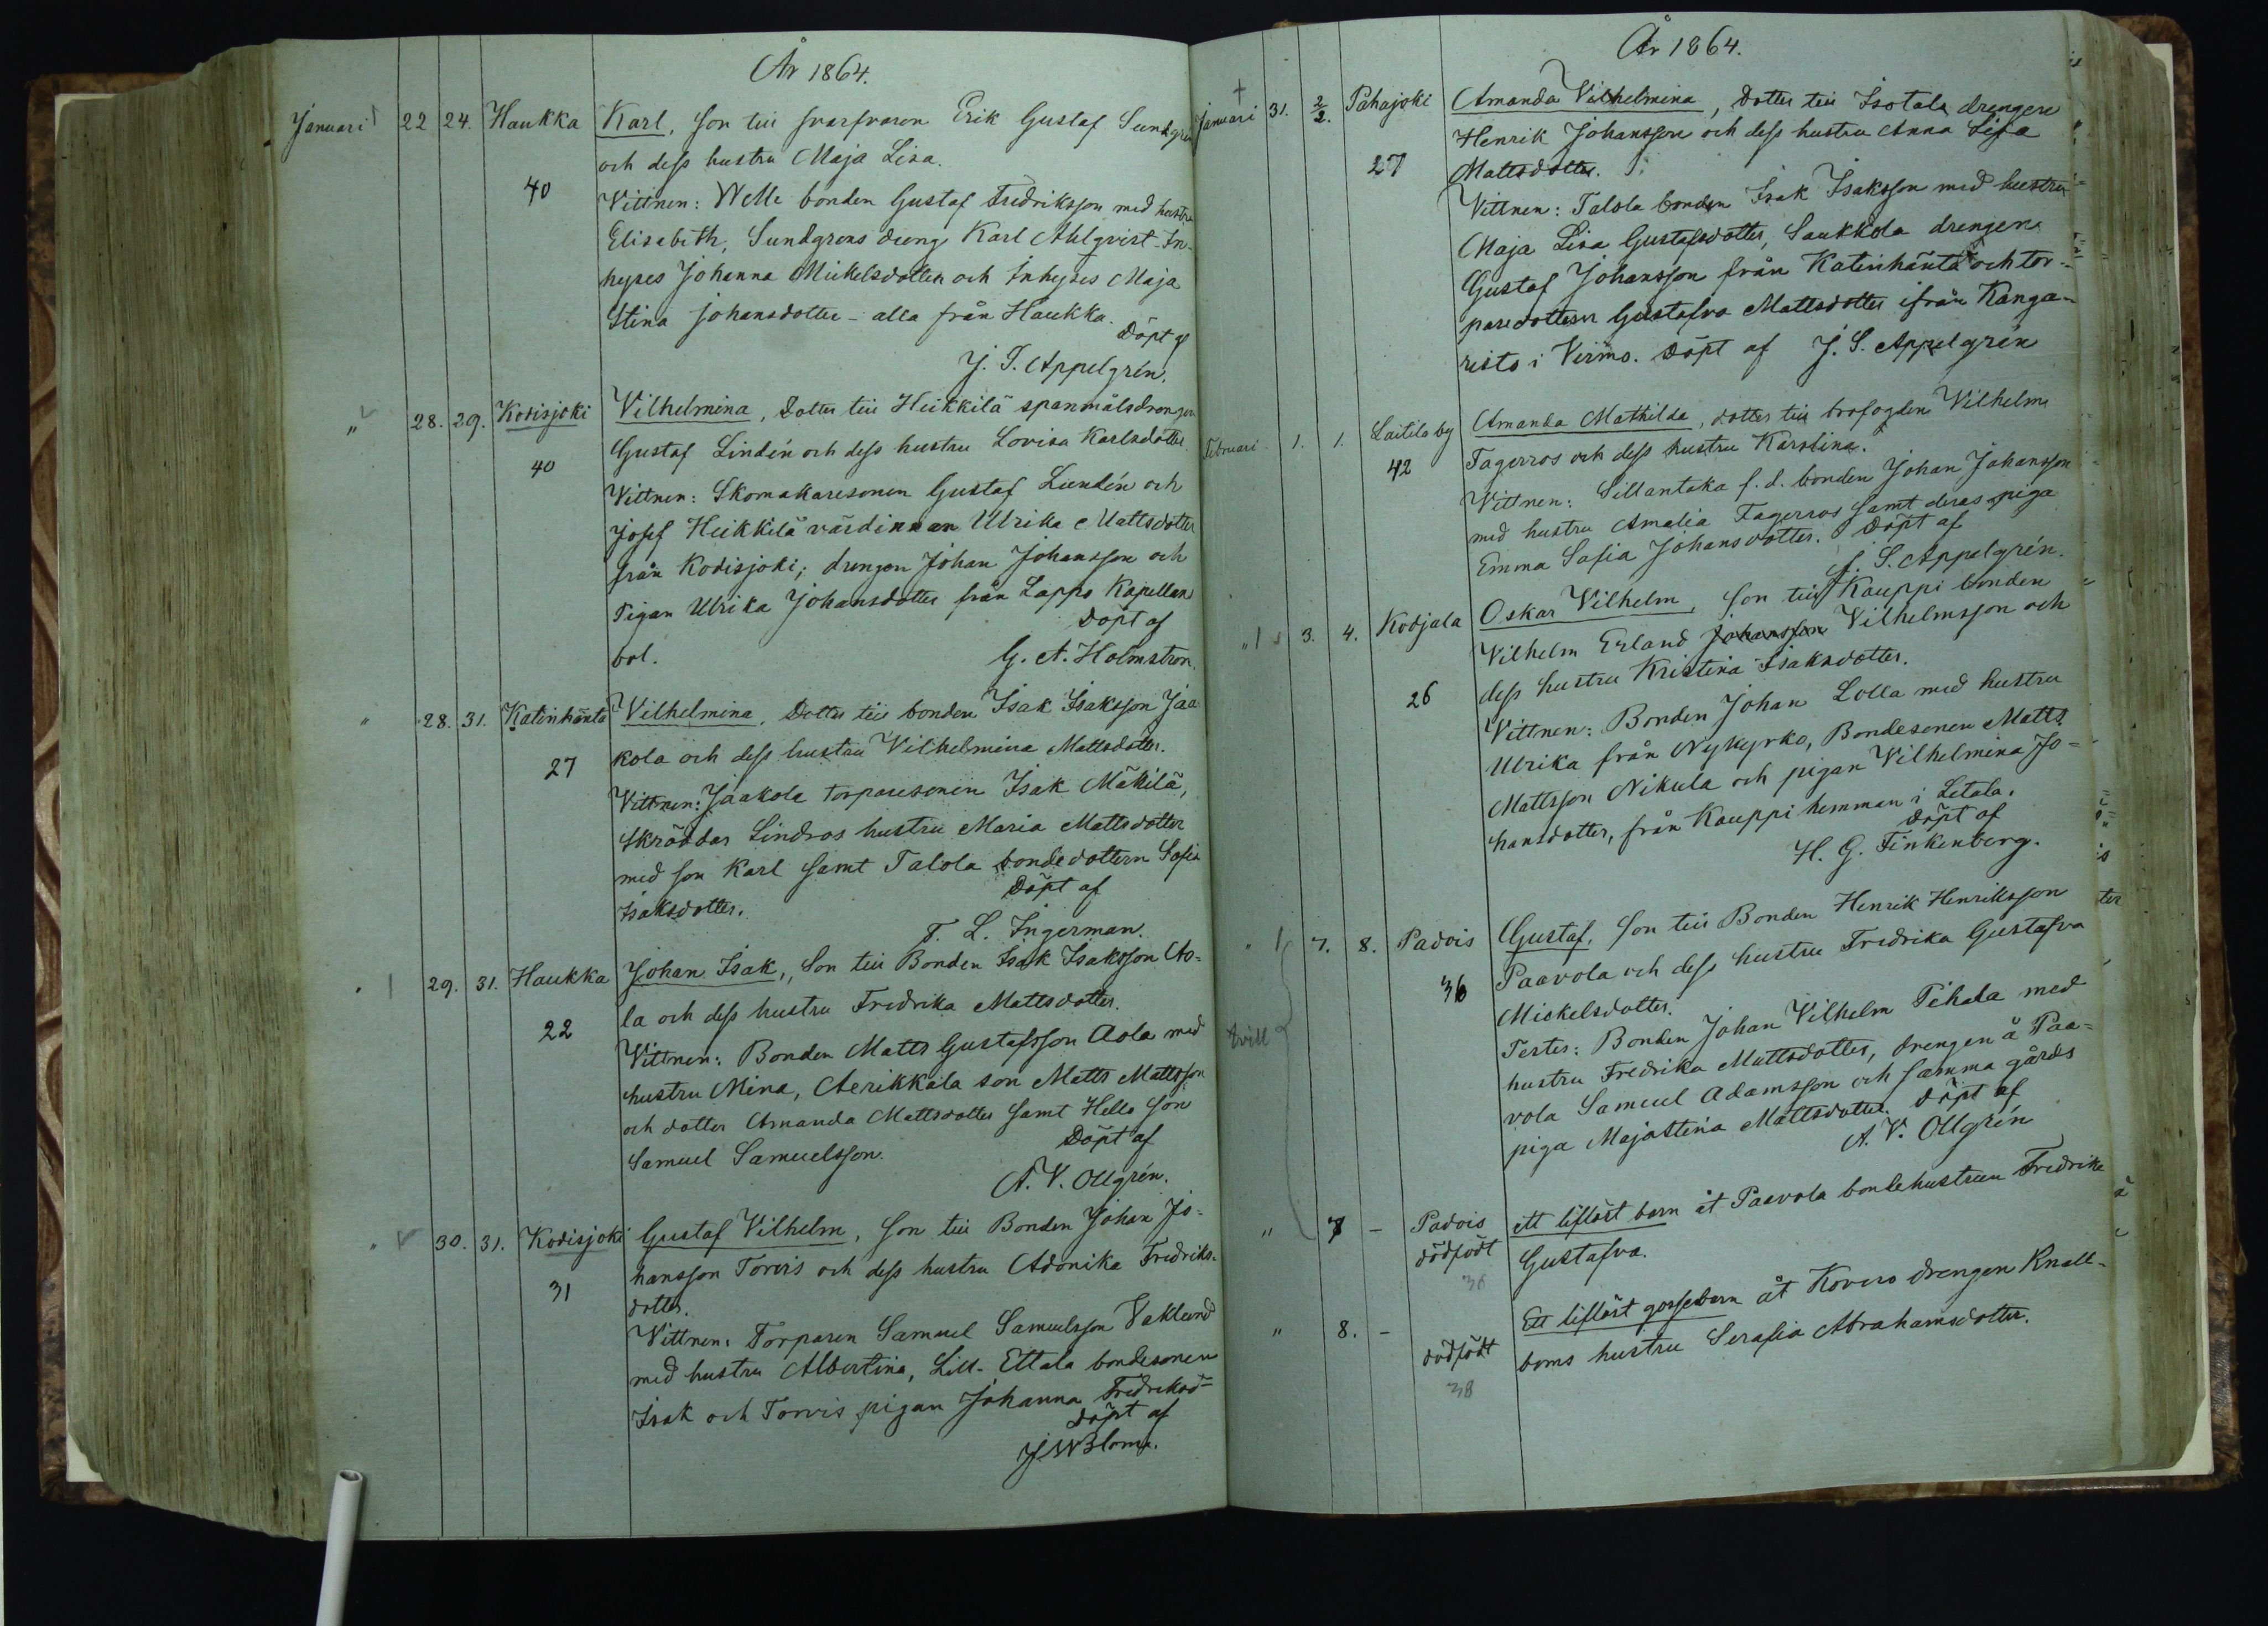 År 1864.
Januari 22 24. Haukka Karl, son till svarfvaren Erik Gustaf Sundgren
och dess hustru Maja Lisa.
40
Vittnen: Welle bonden Gustaf Fredriksson med hustru
Elisabeth, Sundgrens dreng Karl Ahlqvist In-
hyses Johanna Mickelsdotter och Inhyses Maja
Stina Johansdotter - alla från Haukka.
Döpt af
J. S. Appelgrén.
" 28. 29. Kodisjoki Vilhelmina, Dotter till Heikkilä spanmålsdrengen
Gustaf Lindén och dess hustru Lovisa Karlsdotter
40
Vittnen: Skomakaresonen Gustaf Lundén och
Josef Heikkilä värdinnan Ulrika Mattsdotter
från Kodisjoki; drengen Johan Johansson och
Pigan Ulrika Johansdotter från Lappo Kapellans
bol. Döpt af
G. A. Holmström.
" 28. 31. Katinhänta Vilhelmina, Dotter till bonden Isak Isaksson Jaa
kola och dess hustru Vilhelmina Mattsdotter.
27
Vittnen: Jaakola torparesonen Isak Mäkilä,
Skräddar Lindros hustru Maria Mattsdotter
med son Karl samt Talola bondedottern Sofia
Isaksdotter. Döpt af
F. L. Ingerman.
" 29. 31. Haukka Johan Isak, Son till Bonden Isak Isaksson Ao-
la och dess hustru Fredrika Mattsdotter.
22
Vittnen: Bonden Matts Gustafsson Aola med
hustru Mina, Aerikkala son Matts Mattsson
och dotter Amanda Mattsdotter samt Hello son
Samuel Samuelsson. Döpt af
A. V. Ollgrén.
" 30. 31. Kodisjoki Gustaf Vilhelm, Son till Bonden Johan Jo-
hansson Torvis och dess hustru Adonika Fredriks-
dotter.
31
Vittnen: Torparen Samuel Samuelsson Vaklund
med hustru Albertina, Lill-Ettala bondesonen
Isak och Torvis pigan Johanna Fredriksd=
Döpt af
J W Blom.
År 1864.
Januari 31. 2/2. Pahajoki Amanda Vilhelmina, Dotter till Isotala drengen
Henrik Johansson och dess hustru Anna Lisa
27 Mattsdotter.
Vittnen: Talola bonden Isak Isaksson med hustru
Maja Lisa Gustafsdotter, Saukkola drengen
Gustaf Johansson från Katinhänta och tor-
paredottern Gustafva Mattsdotter ifrån Kanga-
risto i Virmo. Döpt af J. S. Appelgrén
Februari 1. 1. Laitila by Amanda Mathilda, dotter till brofogden Vilhelm
Fagerros och dess hustru Karolina.
42
Vittnen: Sillantaka f. d. bonden Johan Johansson
med hustru Amalia Fagerros samt deras piga
Emma Sofia Johansdotter. Döpt af
J. S. Appelgrén.
" 3. 4. Kodjala Oskar Vilhelm, Son till Kauppi bonden
Vilhelm Erland Johansson Vilhelmsson och
26 dess hustru Kristina Isaksdotter.
Vittnen: Bonden Johan Lolla med hustru
Ulrika från Nykyrko, Bondesonen Matts
Mattsson Nikula och pigan Vilhelmina Jo=
hansdotter, från Kauppi hemman i Letala.
Döpt af
H. G. Finkenberg.
" 7. 8. Padois Gustaf, Son till Bonden Henrik Henriksson
36 Paavola och dess hustru Fredrika Gustafva
Mickelsdotter.
tvill
Testes: Bonden Johan Vilhelm Pihala med
hustru Fredrika Mattsdotter, drengen å Paa-
vola Samuel Adamsson och samma gårds
piga Majastina Mattsdotter. Döpt af
A. V. Ollgrén
" 7 - Padois ett liflöst barn åt Paavola bondehustrun Fredrika
dödfödt Gustafva.
36
" 8. - Ett liflöst gossebarn åt Kovero drengen Knall-
dödfödt boms hustru Serafia Abrahamsdotter.
38